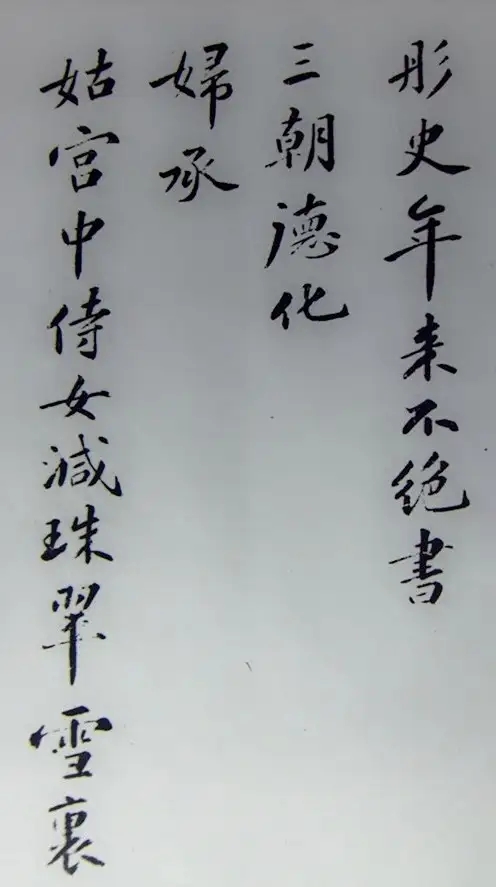 彤史年来不絶書
三朝德化
婦承
姑宫中侍女減珠翠雪裏